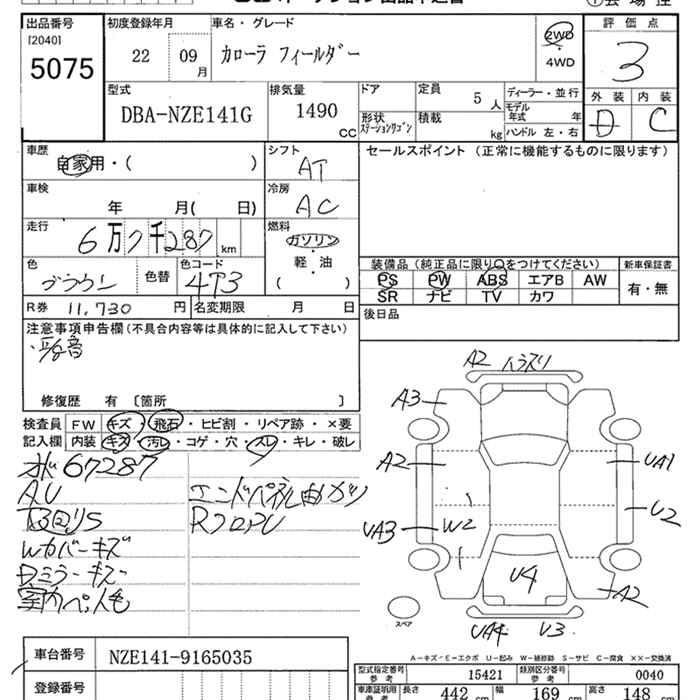 出品番号 初度登録年月 車名・グレード 評価点
[2040]
5075 22 09月 カローラ フィールダー 2WD・4WD 3
型式 排気量 ドア 定員 ディーラー・並行 外装 内装
DBA-NZE141G 1490 CC 5人 モデル年式 年 D C
形状 ステーションワゴン 積載 kg ハンドル 左・右
車歴 自家用・( ) シフト AT セールスポイント (正常に機能するものに限ります)
車検 年 月( 日) 冷房 AC
走行 6万7千287 km 燃料 ガソリン・軽・油 ( )
色 ブラウン 色替 色コード 4T3
装備品 (純正品に限り○をつけてください) 新車保証書
PS PW ABS エアB AW 有・無
SR ナビ TV カワ
R券 11,730円 名変期限 月 日 後日品
注意事項申告欄 (不具合内容等は具体的に記入して下さい)
修復歴 有 〔箇所 〕
検査員 FW キズ・飛石・ヒビ割・リペア跡・×要
記入欄 内装 キズ・汚レ・コゲ・穴・スレ・キレ・破レ
67287
AU
エンドパネル曲ガリ
Wカバーキズ
Dミラーキズ
A2
A3
A2 UA1
UA3 W2 U2
U4 A2
スペア
UA4 U3
A-キズ・E-エクボ U-凹み W-補修跡 S-サビ C-腐食 ××-交換済
車台番号 NZE141-9165035
型式指定番号 参考 15421 類別区分番号 参考 0040
登録番号
車庫証明用 参考 長さ 442 cm 幅 169 cm 高さ 148 cm